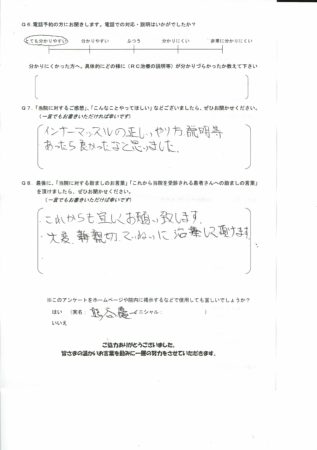 Q6.電話予約の方にお聞きします。電話での対応・説明はいかがでしたか?
とても分かりやすい 分かりやすい ふつう 分かりにくい 非常に分かりにくい
分かりにくかった方へ、具体的にどの様に(RC治療の説明等)が分かりづらかったか教えて下さい
Q7.「当院に対するご感想」、「こんなことやってほしい」などございましたら、ぜひお聞かせください。
(一言でもお書きいただければ幸いです)
インナーマッスルの正しいやり方説明等
あったら良かったなと思いました。
Q8.最後に、「当院に対する励ましのお言葉」「これから当院を受診される患者さんへの励ましの言葉」
を頂けましたら、ぜひお聞かせください。
(一言でもお書きいただければ幸いです)
これからも宜しくお願い致します。
大変親切、ていねいに治療して頂けます。
※このアンケートをホームページや院内に掲示するなどで使用しても宜しいでしょうか?
はい (実名: イニシャル: )
いいえ
ご協力ありがとうございました。
皆さまの温かいお言葉を励みに一層の努力をさせていただきます。